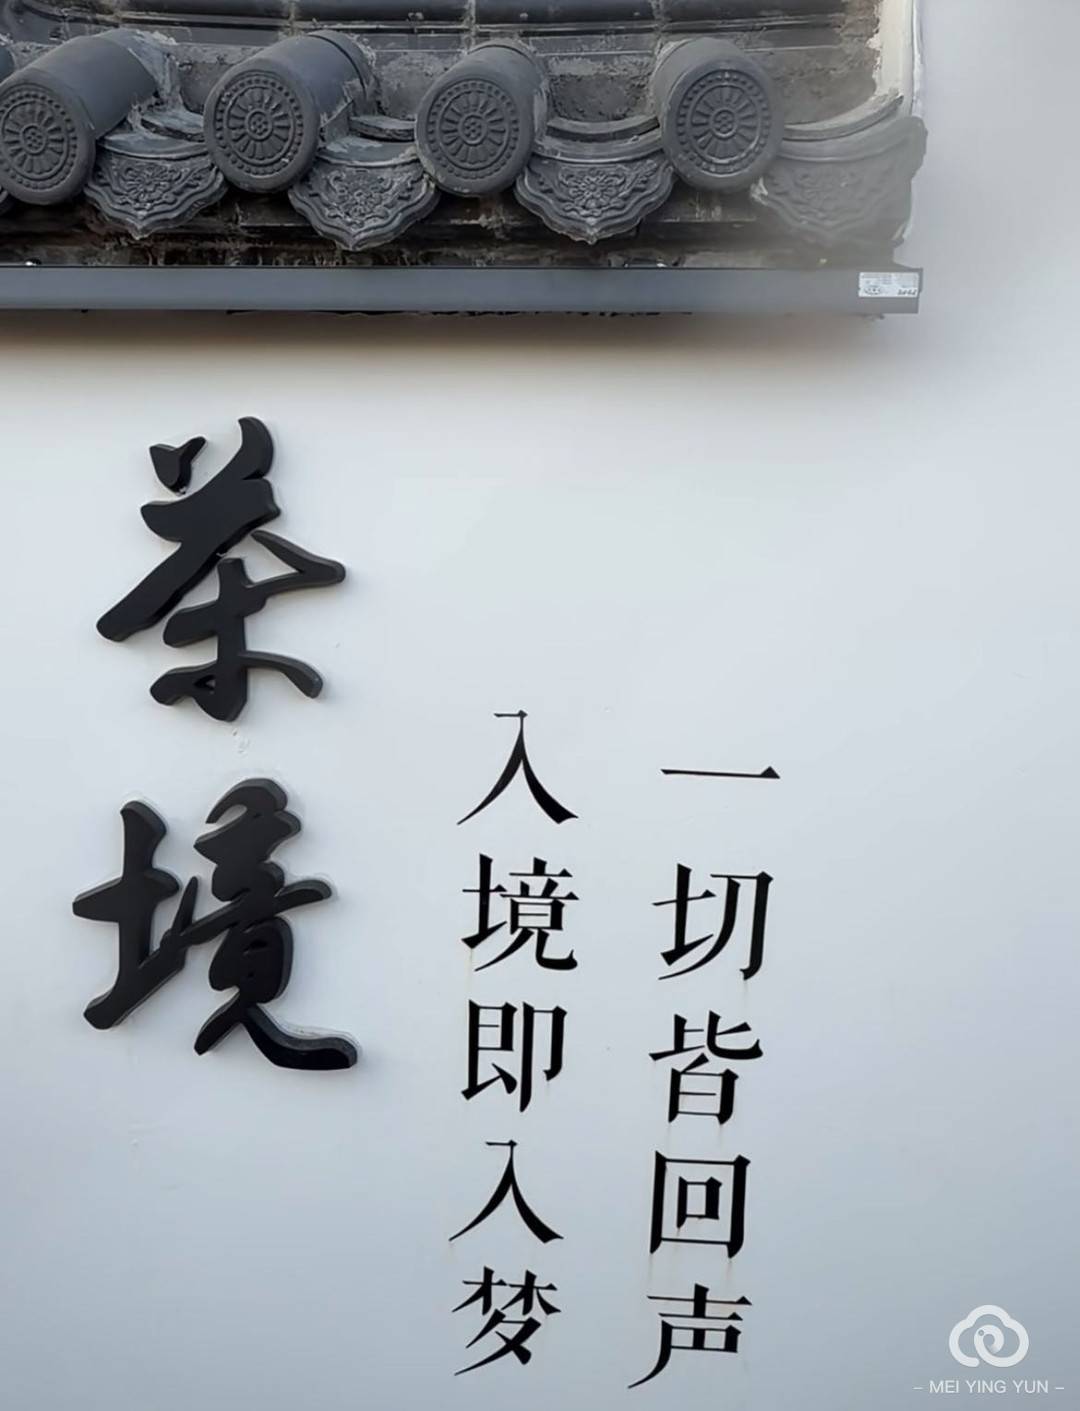 茶境
入境即入梦
一切皆回声
– MEI YING YUN –